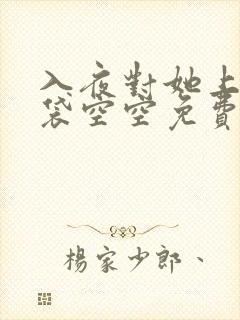 入夜對她上
袋空空免費
楊家少郎、